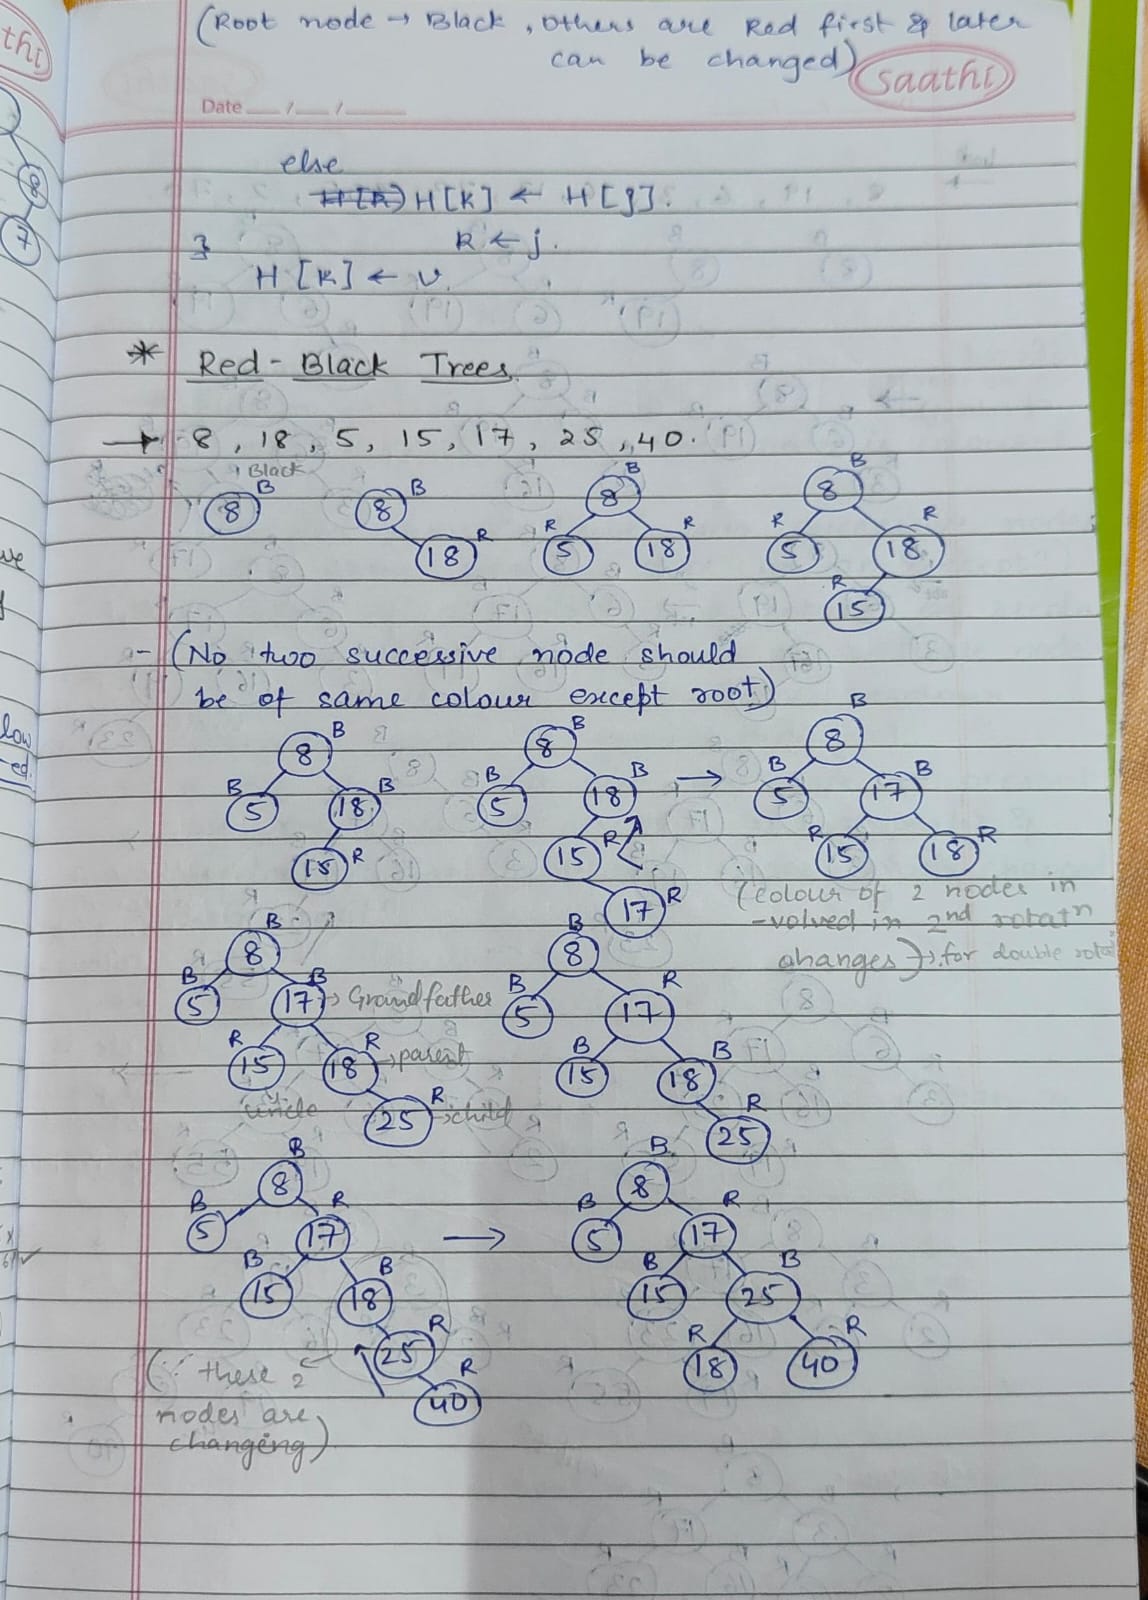 (Root node → Black, Others are Red first & later
can be changed)
saathi
Date __/__/____
else
H[K] ← H[j].
K ← j.
}
H[K] ← v.
* Red-Black Trees.
→ 8, 18, 5, 15, 17, 25, 40.
Black
B B B B
8 8 8 8
R R R R R
18 5 18 5 18
R
15
- (No two successive node should
be of same colour except root)
B B B
8 8 → 8
B B B B B B
5 18 5 18 5 17
R R R R
15 15 15 18
R
17
(colour of 2 nodes in
-volved in 2nd rotatn
changes) → for double rotatn
B B
8 8
B B B R
5 17 → Grandfather 5 17
R R B B
15 18 → parent 15 18
uncle
R R
25 → child 25
B B
8 → 8
B R B R
5 17 5 17
B B B B
15 18 15 25
R R R
25 18 40
R
40
(∵ these 2
nodes are
changing)